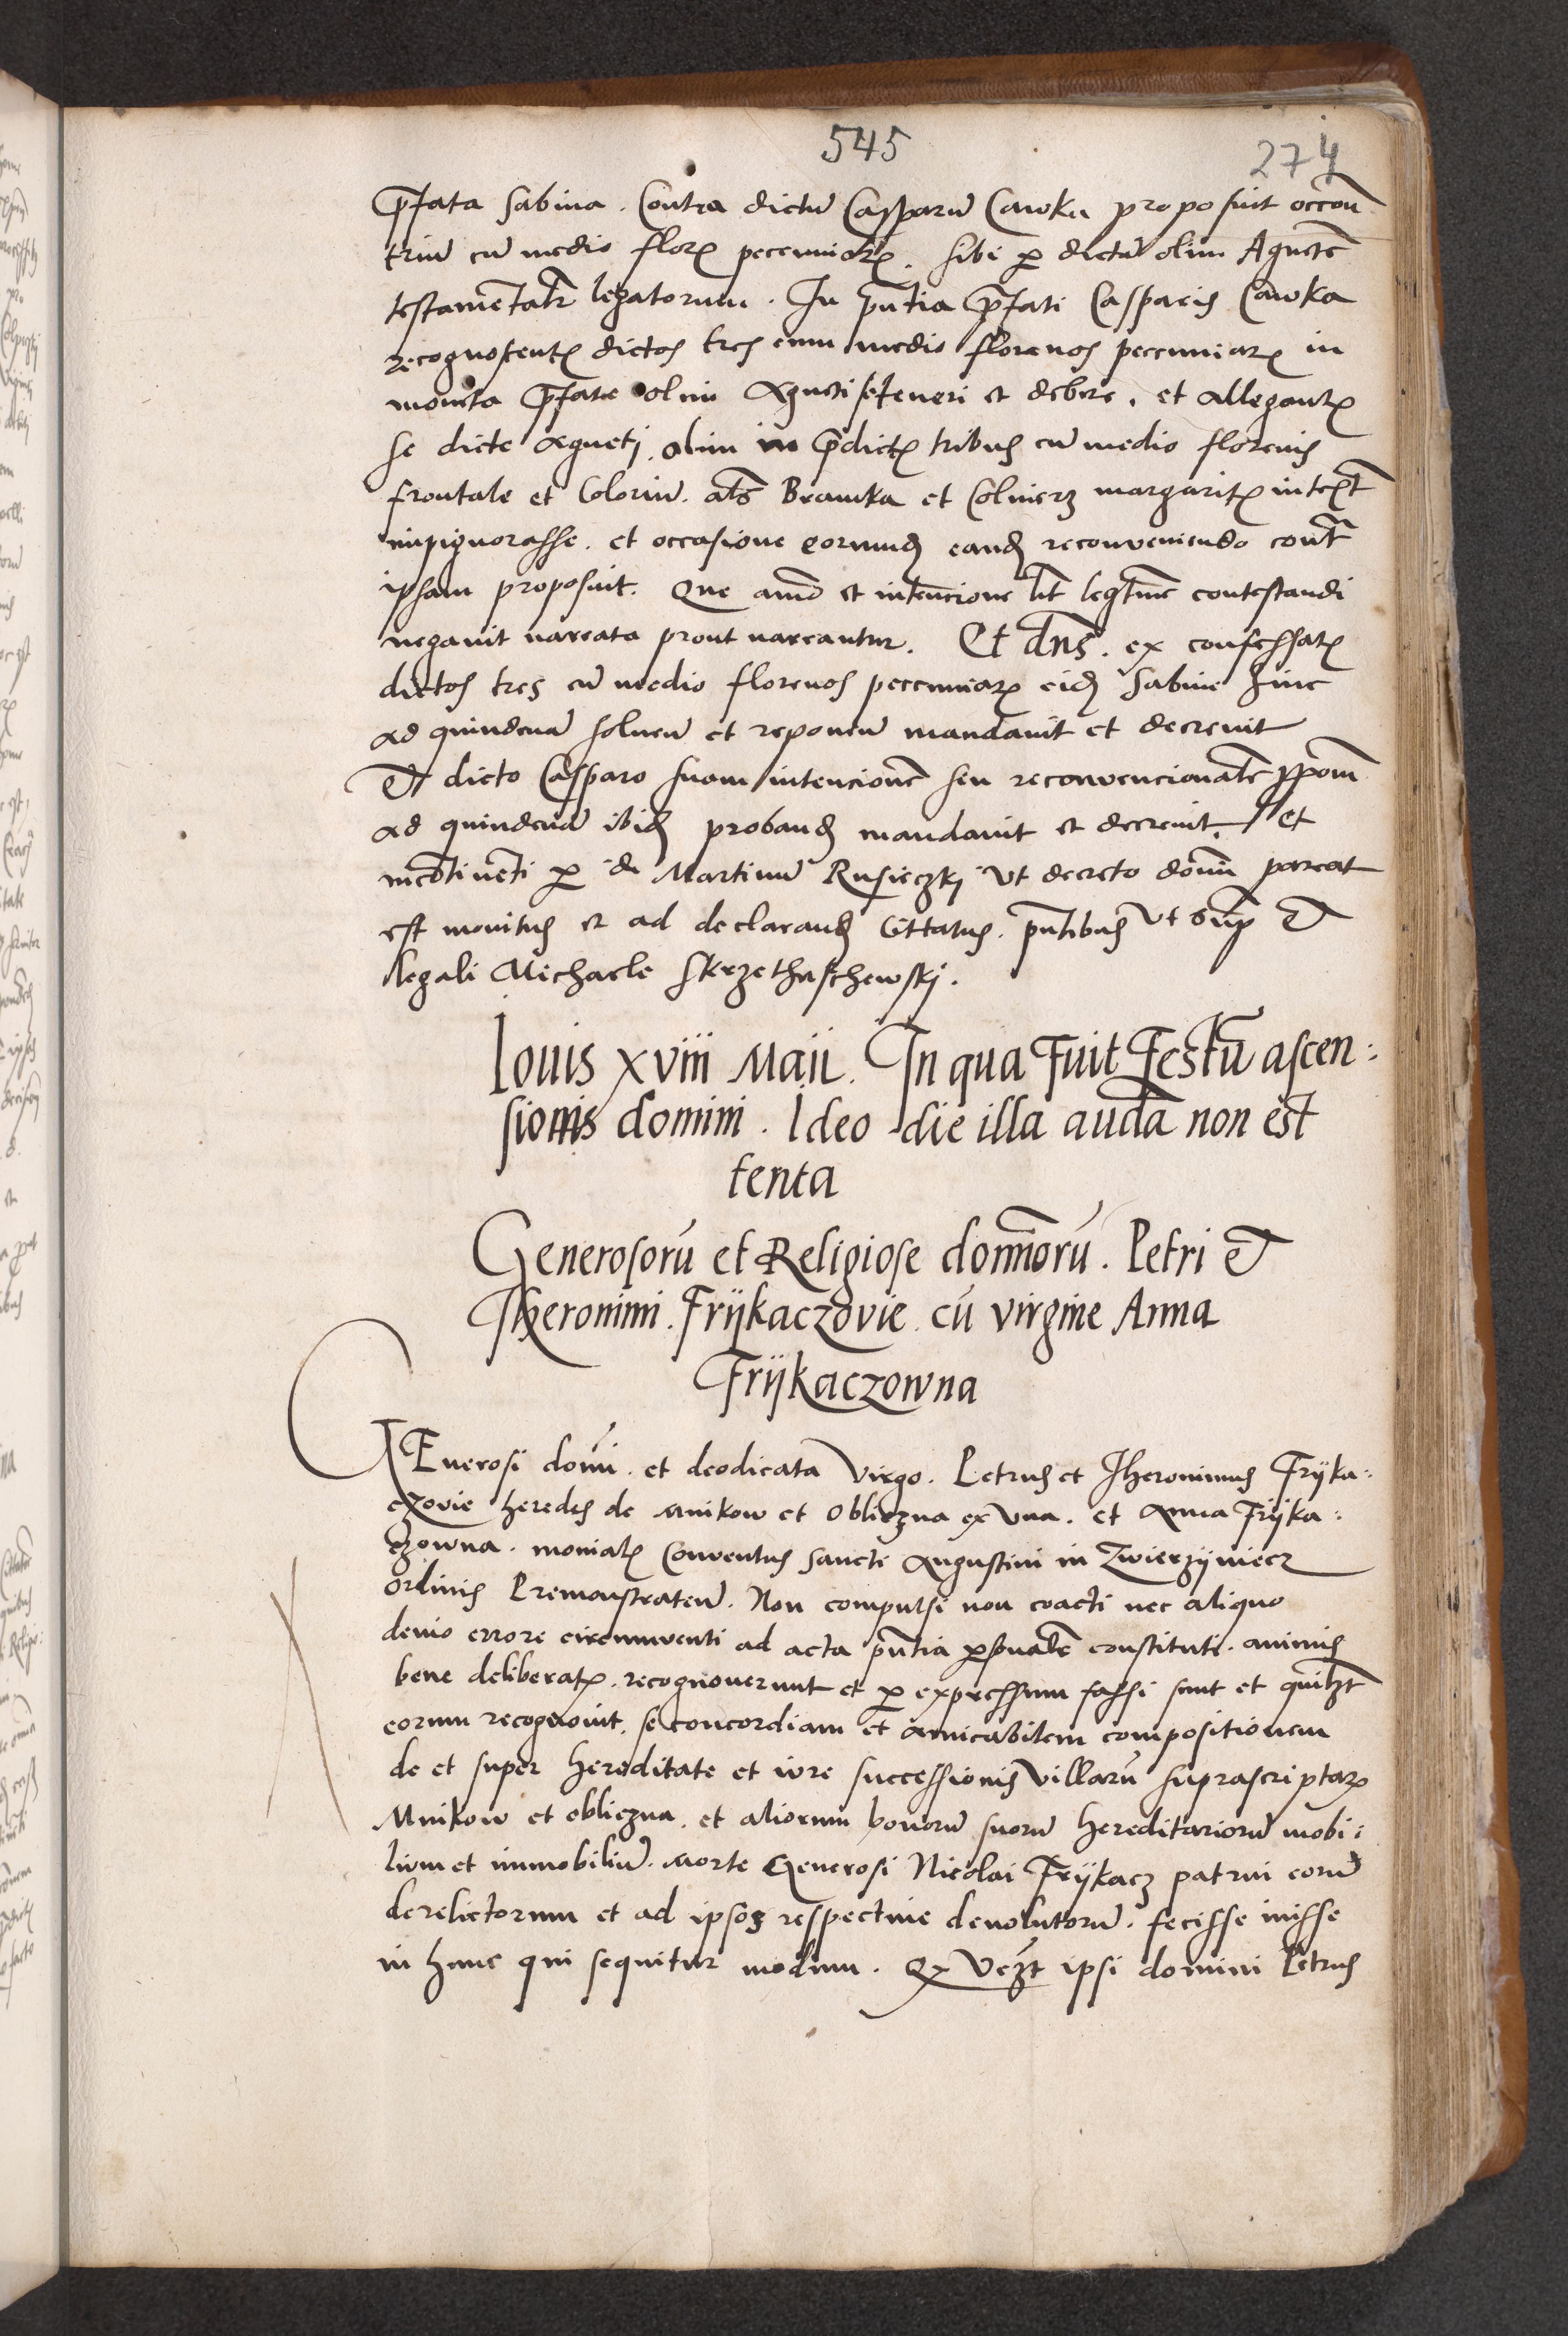 545
274
p̃fata Sabina . Contra dictũ Casparũ Cawka proposuit occoñ
triũ cũ medio florꝝ pecuniarꝝ . sibi ꝑ dictã olim Agnetẽ
testamentatr legatorum . In pñtia p̃fati Casparis Cawka
recognoscentꝭ dictos tres cum medio florenos pecuniarꝝ in
moneta p̃fate olim Agneti se teneri et debere . et allegantꝭ
se dicte Agneti olim in p̃dictꝭ tribus cũ medio florenis
frontale et Coloriũ . als Bramka et Colnierz margaritꝭ intext
impignorasse . et occasione eorumdꝫ eandꝫ reconveniendo contr̃
ipsam proposuit . Que aĩo et intencione lit̃ legtĩme contestandi
negavit narrata prout narrantur . Et dñs . ex confessatꝭ
dictos tres cũ medio florenos pecuniarꝝ eidꝫ Sabine hinc
ad quindenã soluen̄ et reponen̄ mandavit et decrevit
Et dicto Casparo suam intencionẽ seu reconvencionalẽ ꝓpom̃
ad quindenã ibidꝫ probandꝫ mandavit et decrevit . et
incõtinẽti ꝑ dñ Martinũ Rusieczkj ut decreto domĩ pareat
est monitus et ad declarandꝫ Cittatus . pñtibus ut sup̃ et
legali Michaele Skrzethuschewskj .
Iovis xviii Maii . In qua fuit Festũ ascen:
sionis domini . Ideo die illa audã non est
tenta
Generosorũ et Religiose domĩorũ . Petri et
Iheronimi . Frijkaczovie . cũ virgine Anna
Frijkaczowna
GEnerosi domĩ . et deodicata Virgo . Petrus et Iheronimus Frijka:
czovie heredes de Mnikow et Obliczna ex una . et Anna Frijka:
czowna . monialꝭ Conventus Sancti Augustini in Zwierzijniecz
ordinis Premonstraten̄ . Non compulsi non coacti nec aliquo
devio errore circumventi ad acta pñtia ꝑsonalẽ constituti . animis
bene deliberatꝭ . recognoverunt et ꝑ expressum fassi sunt et quilꝫt
eorum recognovit . se concordiam et amicabilem compositionem
de et super hereditate et iure successionis villarũ suprascriptarꝝ
Mnikow et obliczna . et aliorum bonorũ suorũ hereditariorũ mobi:
lium et immobiliũ . Morte Generosi Nicolai Frijkacz patrui eorũ
derelictorum et ad ipsos respective devolutorũ . fecisse inisse
in hunc qui sequitur modum . Qꝫ veꝫt ipsi domini Petrus